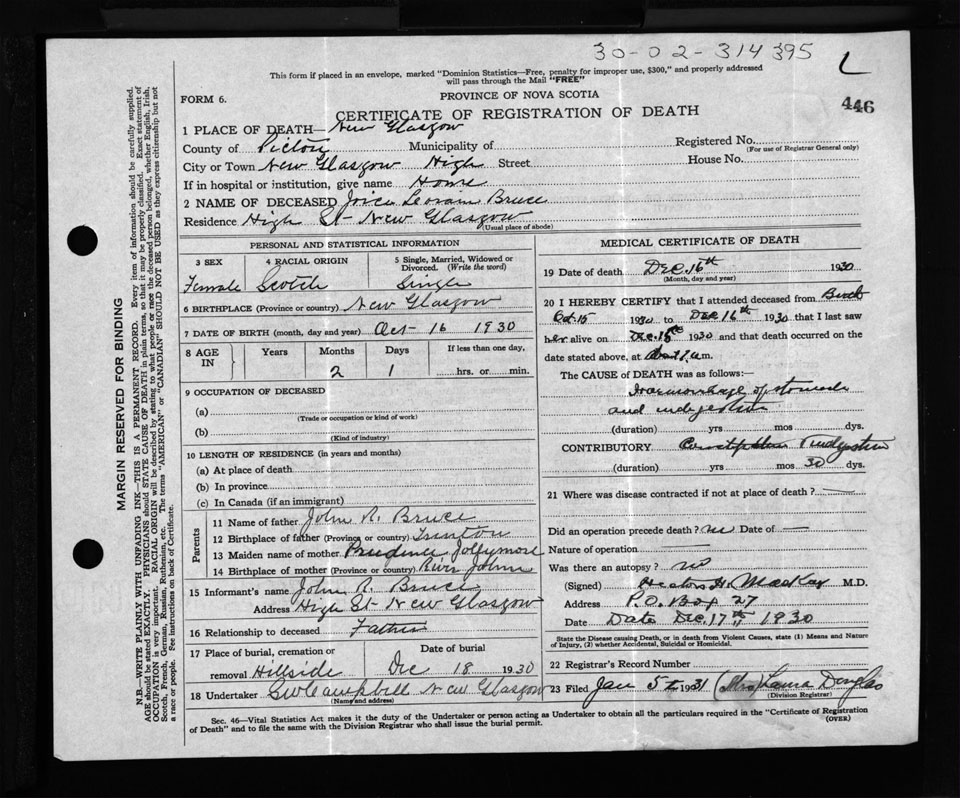 30-02-314395
L
This form if placed in an envelope, marked "Dominion Statistics—Free, penalty for improper use, $300," and properly addressed
will pass through the Mail "FREE"
FORM 6.
PROVINCE OF NOVA SCOTIA
446
CERTIFICATE OF REGISTRATION OF DEATH
1 PLACE OF DEATH— New Glasgow
County of Pictou Municipality of Registered No.
(For use of Registrar General only)
City or Town New Glasgow High Street House No.
If in hospital or institution, give name Home
2 NAME OF DECEASED Bruce
Residence High St New Glasgow
(Usual place of abode)
PERSONAL AND STATISTICAL INFORMATION
3 SEX 4 RACIAL ORIGIN 5 Single, Married, Widowed or
Divorced. (Write the word)
Female Scotch Single
6 BIRTHPLACE (Province or country) New Glasgow
7 DATE OF BIRTH (month, day and year) Oct 16 1930
8 AGE IN Years Months Days If less than one day,
2 1 hrs. or min.
9 OCCUPATION OF DECEASED
(a)
(Trade or occupation or kind of work)
(b)
(Kind of industry)
10 LENGTH OF RESIDENCE (in years and months)
(a) At place of death
(b) In province
(c) In Canada (if an immigrant)
Parents
11 Name of father John R. Bruce
12 Birthplace of father (Province or country)
13 Maiden name of mother Prudence Jollymore
14 Birthplace of mother (Province or country) River John
15 Informant's name John R. Bruce
Address High St New Glasgow
16 Relationship to deceased Father
17 Place of burial, cremation or Date of burial
removal Hillside Dec 18 1930
18 Undertaker Campbell New Glasgow
(Name and address)
MEDICAL CERTIFICATE OF DEATH
19 Date of death Dec. 16th 1930
(Month, day and year)
20 I HEREBY CERTIFY that I attended deceased from Birth
Oct-15 1930 to Dec 16th 1930 that I last saw
her alive on Dec. 15th 1930 and that death occurred on
date stated above, at m.
The CAUSE of DEATH was as follows:—
of stomach
and indigestion
(duration) yrs mos dys.
CONTRIBUTORY Constipation Indigestion
(duration) yrs mos 30 dys.
21 Where was disease contracted if not at place of death? —
Did an operation precede death? no Date of —
Nature of operation —
Was there an autopsy? no
(Signed) H. MacKay M.D.
Address P.O. Box 27
Date Date Dec. 17th 1930
State the Disease causing Death, or in death from Violent Causes, state (1) Means and Nature
of Injury, (2) whether Accidental, Suicidal or Homicidal.
22 Registrar's Record Number
23 Filed Jan 5th 1931 (Mrs) Laura Douglas
(Division Registrar)
Sec. 46—Vital Statistics Act makes it the duty of the Undertaker or person acting as Undertaker to obtain all the particulars required in the "Certificate of Registration
of Death" and to file the same with the Division Registrar who shall issue the burial permit.
(OVER)
MARGIN RESERVED FOR BINDING
N.B.—WRITE PLAINLY WITH UNFADING INK—THIS IS A PERMANENT RECORD. Every item of information should be carefully supplied.
AGE should be stated EXACTLY. PHYSICIANS should STATE CAUSE OF DEATH in plain terms, so that it may be properly classified. Exact statement of
OCCUPATION is very important. RACIAL ORIGIN will be described by stating to what people or race the deceased person belonged, whether English, Irish,
Scotch, French, German, Russian, Ruthenian, etc. The terms "AMERICAN" or "CANADIAN" SHOULD NOT BE USED as they express citizenship but not
a race or people. See instructions on back of Certificate.